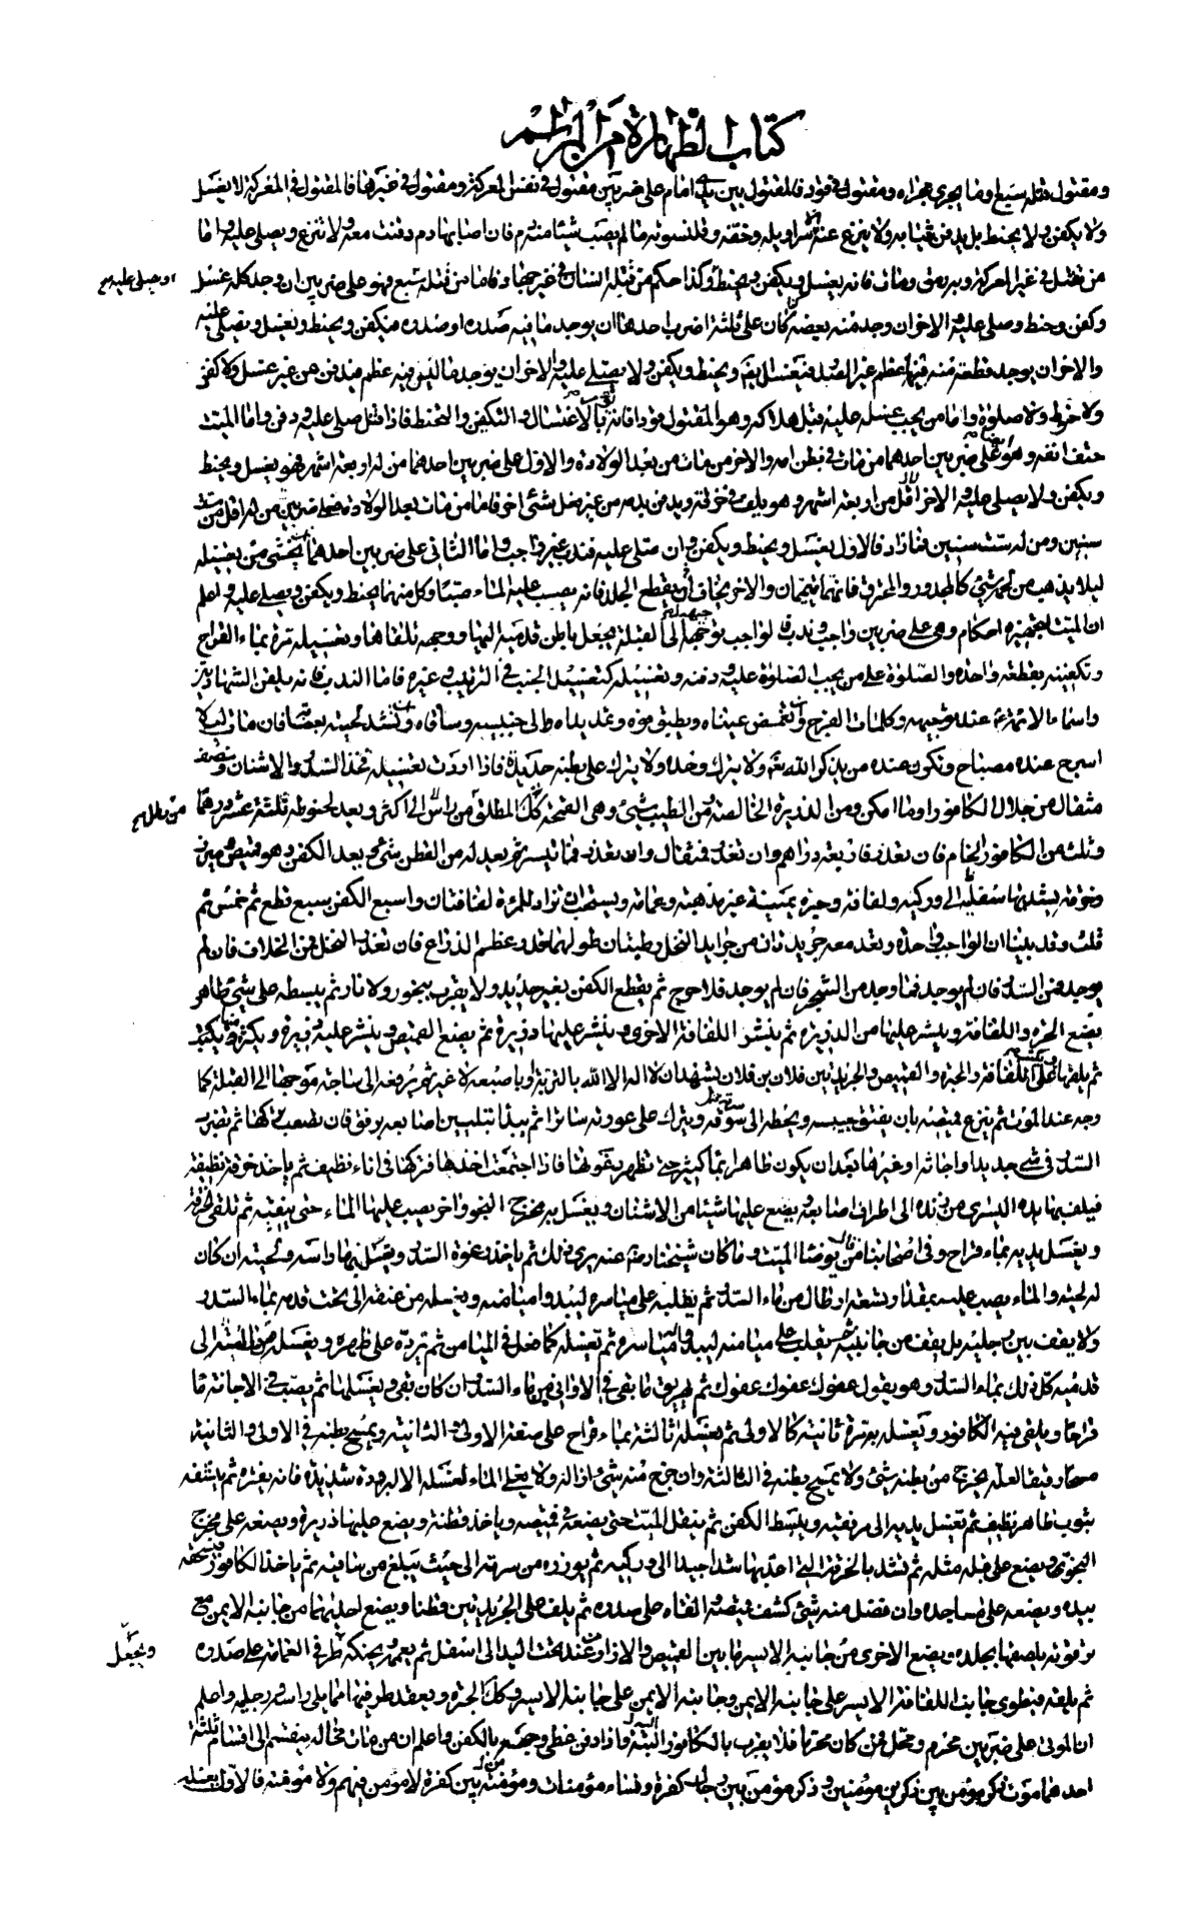 كتاب الطهارة من المراسم
ومقتول قتله سبع اوما يجرى مجراه ومقتول فى قود فالمقتول بين يدى امام على ضربين مقتول فى نفس المعركة ومقتول فى غيرها فالمقتول فى المعركة لا يغسل
ولا يكفن ولا يحنط بل يدفن بثيابه ولا ينزع عنه سراويله وخفه وقلنسوته ما لم يصب شيئا منهم دم فان اصابها دم دفنت معه ولا تنزع ويصلى عليه واما
من قتل فى غير المعركة وبه رمق ومات فانه يغسل ويكفن ويحنط وكذا حكم من قتله انسان فى غيرهما واما من قتله سبع فهو على ضربين ان وجد كله غسل
وكفن وحنط وصلى عليه والاخر ان وجد منه بعضه كان على ثلثة اضرب احدها ان يوجد ما فيه صدره او صدره فيكفن ويحنط ويغسل ويصلى عليه
والاخر ان يوجد قطعة منه فيها عظم غير الصدر فيغسل ويحنط ويكفن ولا يصلى عليه والاخر ان يوجد ما ليس فيه عظم فيدفن من غير غسل ولا كفن
ولا حنوط ولا صلوة واما من يجب غسله عليه قبل هلاكه وهو المقتول قودا فانه بالاغتسال والتكفن والتحنط فاذا قتل صلى عليه ودفن واما الميت
حتف انفه وهو على ضربين احدهما من مات فى بطن امه والاخر من مات من بعد الولادة والاول على ضربين احدهما من له اربعة اشهر فهو يغسل ويحنط
ويكفن ولا يصلى عليه والاخر لاقل من اربعة اشهر وهو يلف فى خرقة ويدفن بدمه من غير فعل شئ اخر فاما من مات بعد الولادة فعلى ضربين من له اقل من ست
سنين ومن له ست سنين فزاد فالاول يغسل ويحنط ويكفن وان صلى عليه فندب غير واجب واما الثانى على ضربين احدهما يخشى من تغسيله
ليلا يذهب من لحمه شئ كالمجدور والمحترق فانهما ييممان والاخر يخاف ان يقطع الجلد فانه يصب عليه الماء صبا وكل منهما يحنط ويكفن ويصلى عليه واعلم
ان الميت لتجهيزه احكام وهى على ضربين واجب وندب فالواجب توجيهه الى القبلة بجعل باطن قدميه اليها ووجهه تلقاها وتغسيله مرة بماء القراح
وتكفينه بقطعة واحدة والصلوة على من يجب الصلوة عليه ودفنه وتغسيله كتغسيل الجنب فى الترتيب وغيره فاما الندب فانه يلقن الشهادتين
واسماء الائمة عند توجيهه وكلمات الفرج وتغمض عيناه ويطبق فوه وتمد يداه الى جنبيه وساقاه وتشد لحيته بعصابة فان مات ليلا
اسرج عنده مصباح وتكون عنده من يذكر الله تعالى ولا يترك وحده ولا يترك على بطنه حديدة فاذا اردت تغسيله فخذ السدر والاشنان ونصف
مثقال من جلال الكافور او ما امكن ومن الذريرة الخالصة من الطيب شئ وهى القمحة
وثلث من الكافور الخام فان تعذر فاربعة دراهم وان تعذر فمثقال وان تعذر فما تيسر ثم يعد له من القطن شئ ثم يعد الكفن وهو قميص ومئزر
وخرقة يشد بها سفله الى وركيه ولفافة وحبرة يمنية غير مذهبة وعمامة ويستحب ان تزاد للمرة لفافتان واسبغ الكفن سبع قطع ثم خمس ثم
ثلث وقد بينا ان الواجب واحدة وتعد معه جريدتان من جرايد النخل رطبتان طولهما قدر عظم الذراع فان تعذر النخل فمن الخلاف فان لم
يوجد فمن السدر فان لم يوجد فما وجد من الشجر فان لم يوجد فلا حرج ثم يقطع الكفن بغير حديد ولا يقرب ببخور ولا نار ثم يبسطه على شئ طاهر
يضع الحبرة واللفافة وينثر عليها من الذريرة ثم ينشر اللفافة الاخرى وينثر عليها ذريرة ثم يضع القميص وينثر عليه ذريرة ويكثر منها ويكتب
على اللفافة والحبرة والقميص والجريدتين فلان بن فلان يشهد ان لا اله الا الله بالتربة او باصبعه لا غير ثم يرفعه الى ساجة موجها الى القبلة كما
وجه عند الموت ثم ينزع قميصه بان يفتق جيبه ويحطه الى سرته ويترك على عورته ساترا ثم يبدأ بتليين اصابعه برفق فان تصعبت تركها ثم يضرب
السدر فى شئ جديد اواجانة او غيرها بعد ان يكون طاهرا بماء كثير حتى تظهر رغوتها فاذا اجتمعت اخذها فتركها فى اناء نظيف ثم ياخذ خرقة نظيفة
فيلف بها يده اليسرى من زنده الى اطراف اصابعه ويضع عليها شيئا من الاشنان ويغسل به مخرج النجو واخر يصب عليها الماء حتى ينقيه ثم تلقى الخرقة
ويغسل يديه بماء قراح وفى اصحابنا من يوضئ الميت وما كان شيخنا رضى عنه يرى ذلك ثم ياخذ رغوة السدر ويغسل بها راسه ولحيته ان كان
له لحية والماء يصب عليه
ولا يقف بين رجليه بل يقف من جانبيه ثم يقلب على ميامنه ليبدو مياسره ثم تغسله كما فعل فى الميامن ثم ترده على ظهره ويغسله الى
قدميه كل ذلك بماء السدر وهو يقول عفوك عفوك عفوك ثم يهريق ما بقى فى الاوانى من ماء السدر ان كان بقى ويغسلها ثم يصب فى الاجانة ماء
قراحا ويلقى فيه الكافور وتغسله به مرة ثانية كالاولى ثم يغسله ثالثة بماء قراح على صفة الاولى والثانية ويمسح بطنه فى الاولى والثانية
مسحا رفيقا لعله يخرج من بطنه شئ ولا يمسح بطنه فى الثالثة وان خرج منه شئ ازاله ولا يغلى الماء لغسله الا لبرودة شديدة فانه يفتره ثم ينشفه
بثوب طاهر نظيف ثم تغسل يديه الى مرفقيه ويبسط الكفن ثم ينقل الميت حتى يضعه فى قميصه وياخذ قطنة ويضع عليها ذريرة ويضعه على مخرج
النجو ويضع على قبله مثله ثم تشد بالخرقة التى اعدها شدا جيدا الى وركيه ثم يوزره من سرته الى حيث تبلغ من ساقيه ثم ياخذ الكافور فيسحقه
بيده ويضعه على مساجده وان فضل منه شئ كشف قميصه والقاه على صدره ثم يلف على الجريدتين قطنا ويضع احداهما من جانبه الايمن مع
ترقوته يلصقها بجلده ويضع الاخرى من جانبه الايسر ما بين القميص والازار عند تحت اليد الى اسفل ثم يعممه ويحنكه طرفى العمامة على صدره
ثم يلفه فيطوى جانب اللفافة الايسر على جانبه الايمن وجانبه الايمن على جانبه الايسر وكذا الحبرة ويعقد طرفيها مما يلى راسه ورجليه واعلم
ان الموتى على ضربين محرم ومحل فمن كان محرما فلا يقرب بالكافور البتة واذا دفن غطى وجهه بالكفن واعلم ان من مات ينقسم الى اقسام ثلثة
احدها موت ذكر مؤمن بين ذكرين مؤمنين وذكر مؤمن بين رجال كفرة ونساء مؤمنات ومؤمنة بين كفرة لا مؤمن فيهم ولا مؤمنة فالاول يغسله
ويصلى عليه
ويجعل